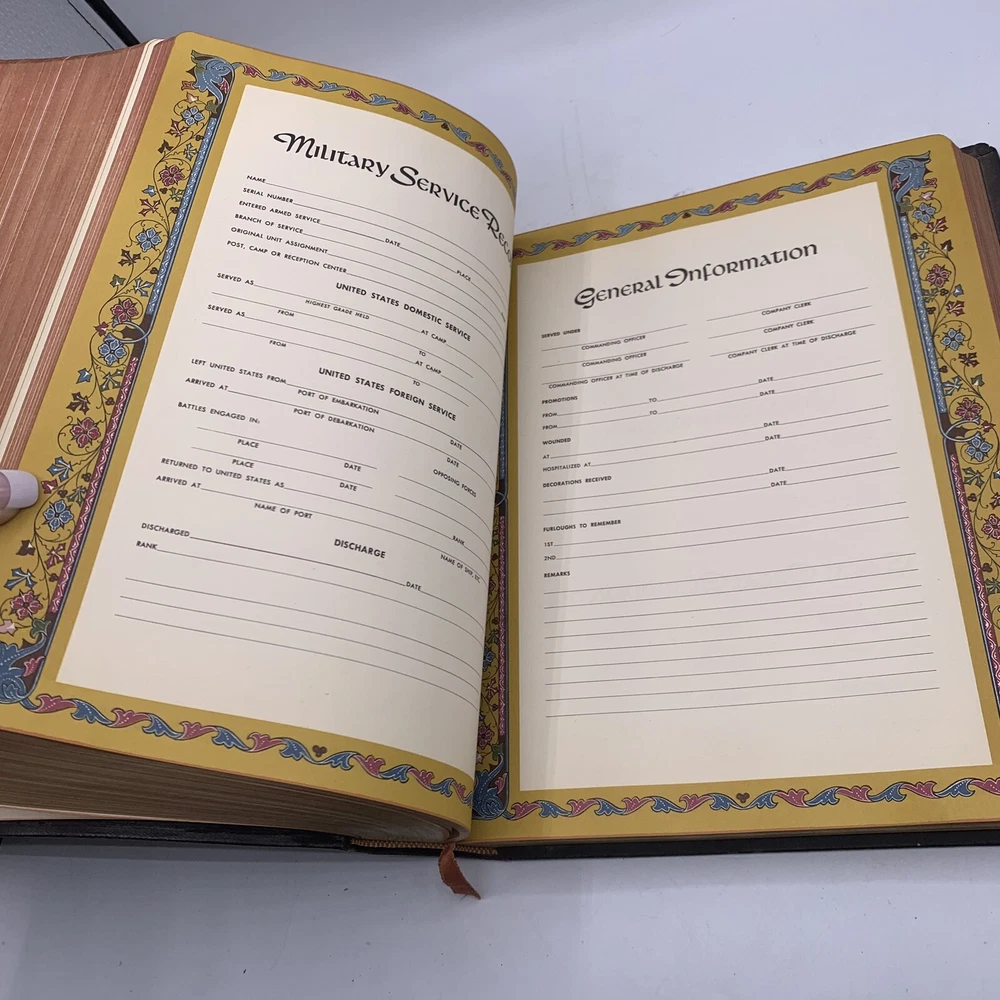 Military Service Rec
NAME
SERIAL NUMBER
ENTERED ARMED SERVICE
BRANCH OF SERVICE DATE
ORIGINAL UNIT ASSIGNMENT PLACE
POST, CAMP OR RECEPTION CENTER
UNITED STATES DOMESTIC SERVICE
SERVED AS
HIGHEST GRADE HELD AT CAMP
FROM TO
SERVED AS AT CAMP
FROM TO
UNITED STATES FOREIGN SERVICE
LEFT UNITED STATES FROM
PORT OF EMBARKATION DATE
ARRIVED AT
PORT OF DEBARKATION DATE
BATTLES ENGAGED IN:
PLACE DATE OPPOSING FORCES
PLACE DATE
RETURNED TO UNITED STATES AS RANK
ARRIVED AT NAME OF SHIP, ETC.
NAME OF PORT
DISCHARGE
DISCHARGED
RANK DATE
General Information
SERVED UNDER
COMMANDING OFFICER COMPANY CLERK
COMMANDING OFFICER COMPANY CLERK
COMMANDING OFFICER AT TIME OF DISCHARGE COMPANY CLERK AT TIME OF DISCHARGE
PROMOTIONS
FROM TO DATE
FROM TO DATE
WOUNDED
AT DATE
HOSPITALIZED AT DATE
DECORATIONS RECEIVED
DATE
DATE
FURLOUGHS TO REMEMBER
1ST
2ND
REMARKS